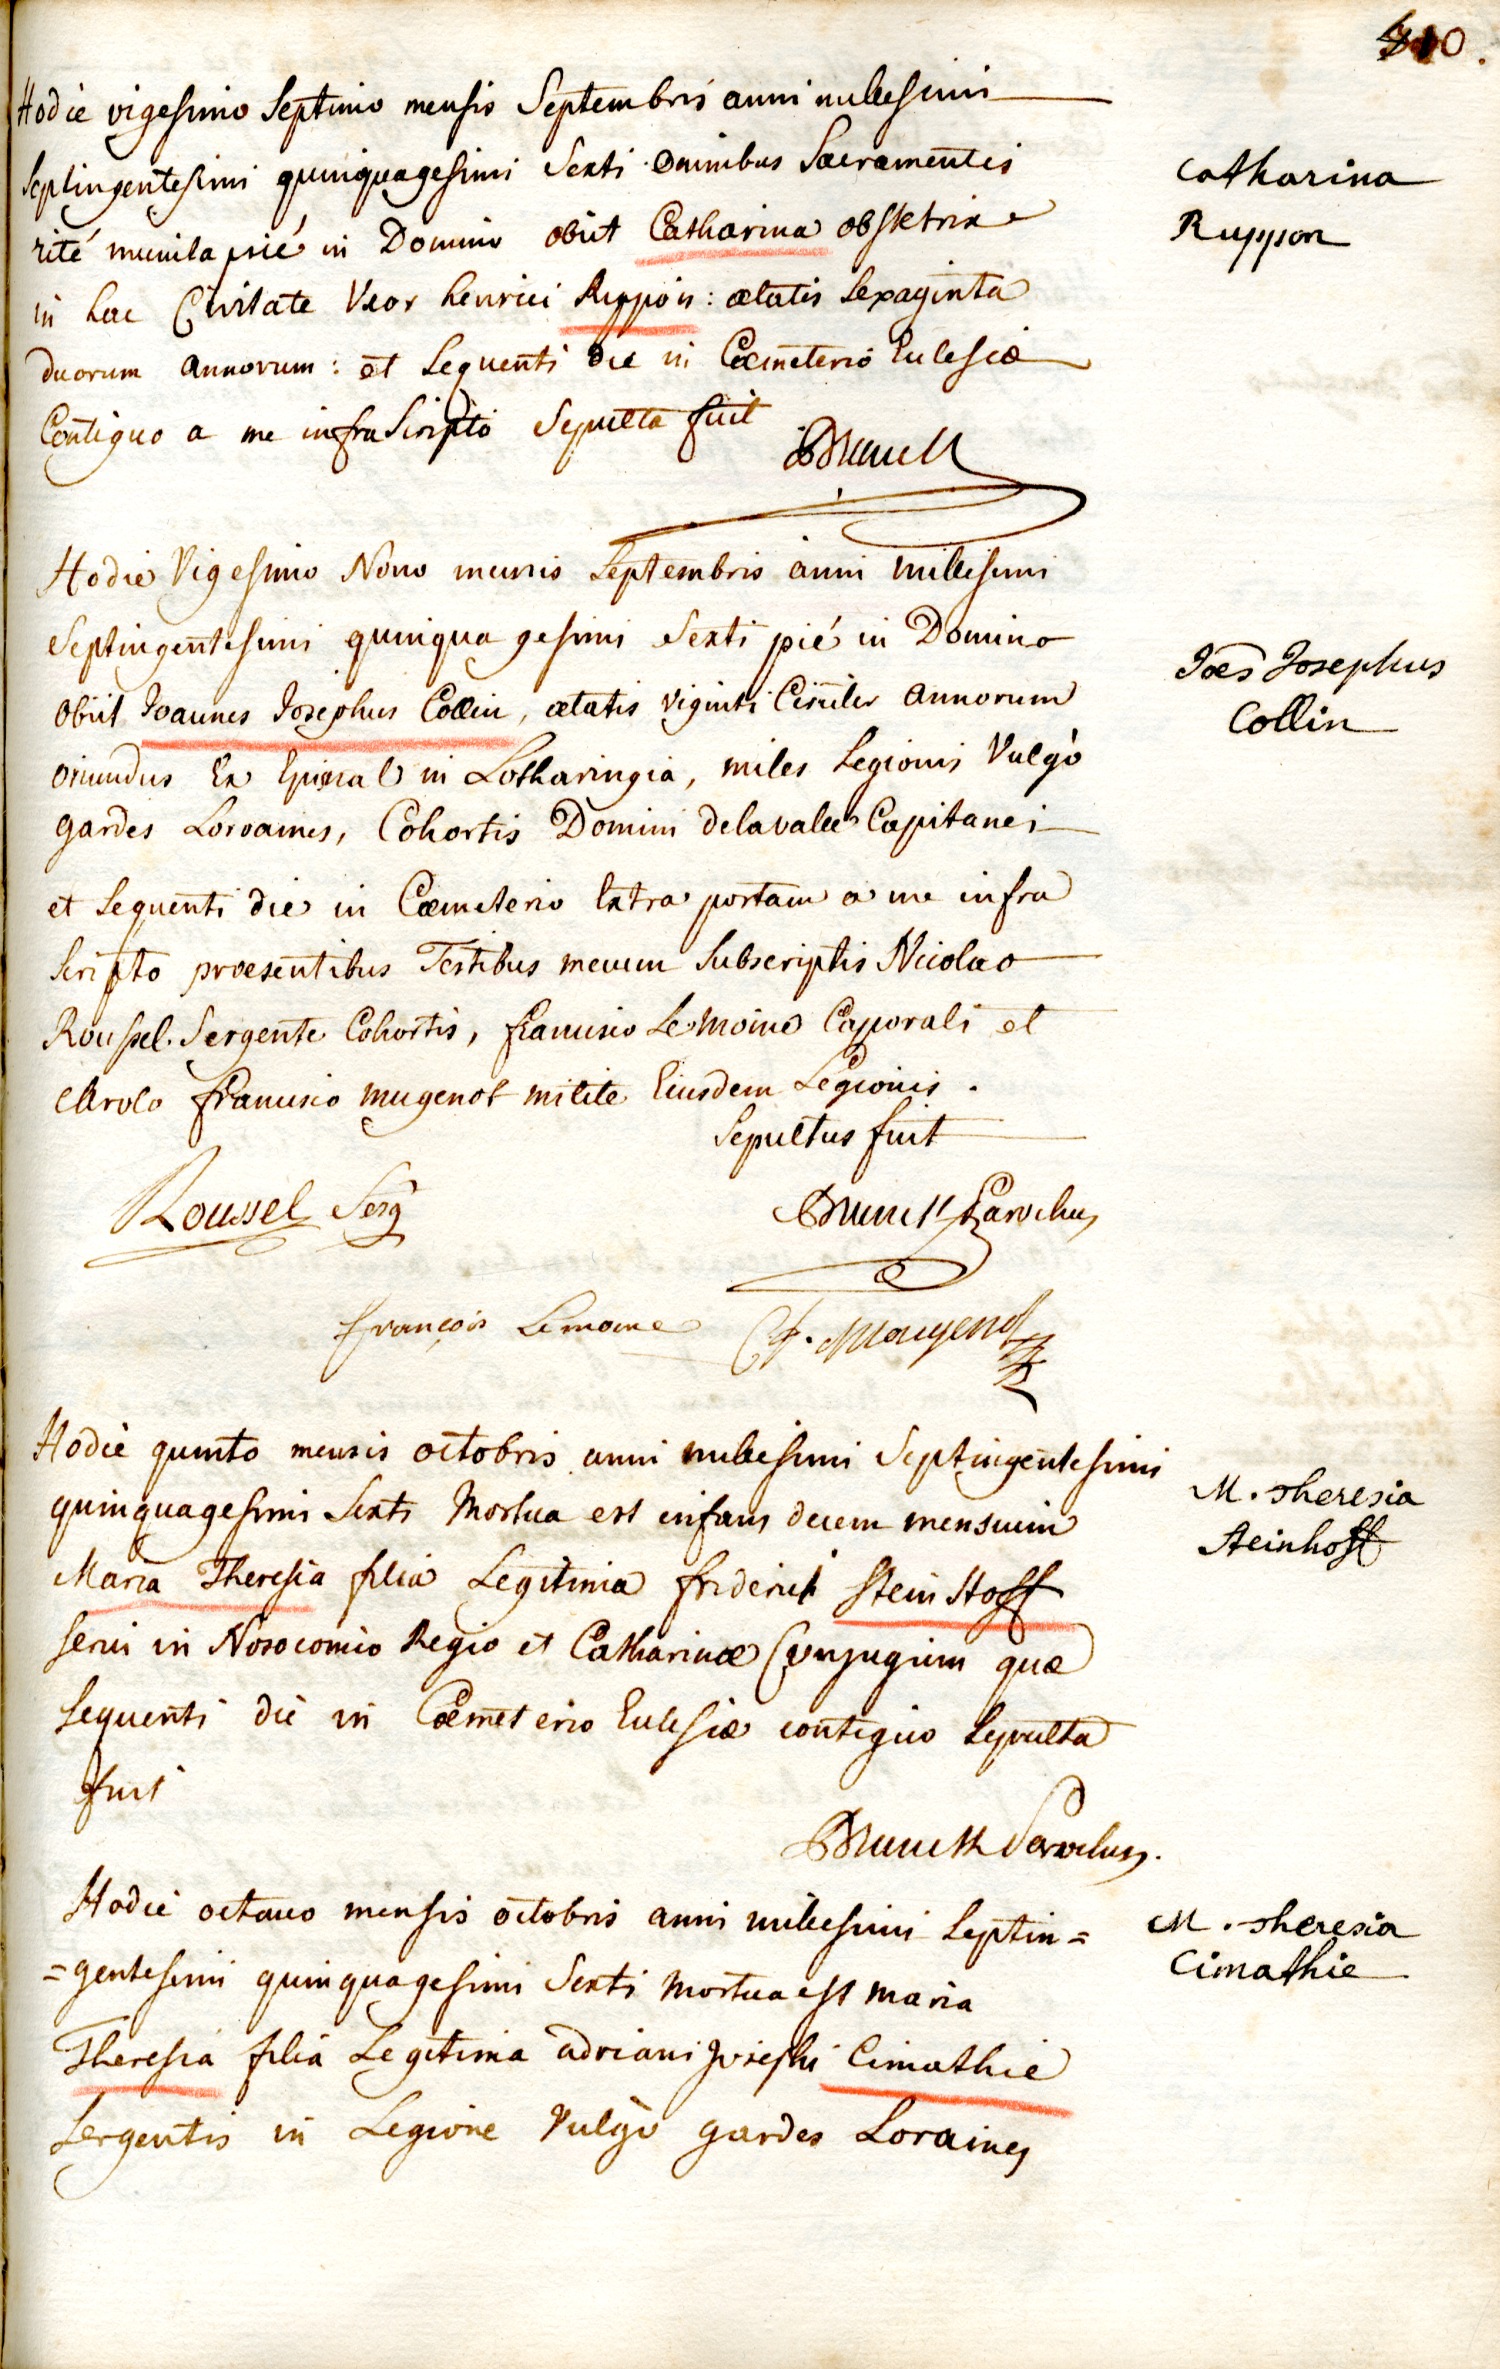 10.
Hodie vigesimo Septimo mensis Septembris anni millesimi
Septingentesimi quinquagesimi Sexti omnibus Sacramentis
rité munita pié in Domino obiit Catharina obstetrix
in hac Civitate Uxor henrici Ruppon: ætatis Sexaginta
duorum annorum: et Sequenti die in Cœmeterio Ecclesiæ
Contiguo a me infra Scripto Sepulta fuit
Catharina
Ruppon
Hodie Vigesimo Nono mensis Septembris anni millesimi
Septingentesimi quinquagesimi Sexti pié in Domino
obiit Joannes Josephus Collin, ætatis viginti Circiter annorum
oriundus Ex Epinal in Lotharingia, miles Legionis Vulgò
gardes Loroaines, Cohortis Domini delavalée Capitanei
et Sequenti die in Cœmeterio Extra portam a me infra
Scripto præsentibus Testibus mecum Subscriptis Nicolao
Roussel Sergente Cohortis, francisco Le Moine Caporali et
Carolo francisco mugenot milite Eiusdem Legionis.
Sepultus fuit
Joēs Josephus
Collin
Roussel Serg
Parochus
françois Lemoine
C. f. Maugenot
Hodie quinto mensis octobris anni millesimi Septingentesimi
quinquagesimi Sexti Mortua est infans decem mensium
Maria Theresia filia Legitima friderici Stein Hoff
servi in Nosocomio Regio et Catharinæ Conjugum quæ
Sequenti die in Cœmeterio Ecclesiæ contiguo Sepulta
fuit
Parochus.
M. Theresia
Steinhoff
Hodie octavo mensis octobris anni millesimi Septin=
=gentesimi quinquagesimi Sexti Mortua est maria
Theresia filia Legitima adriani Josephi Cimathie
Sergentis in Legione Vulgò gardes Loraines
M. Theresia
Cimathie